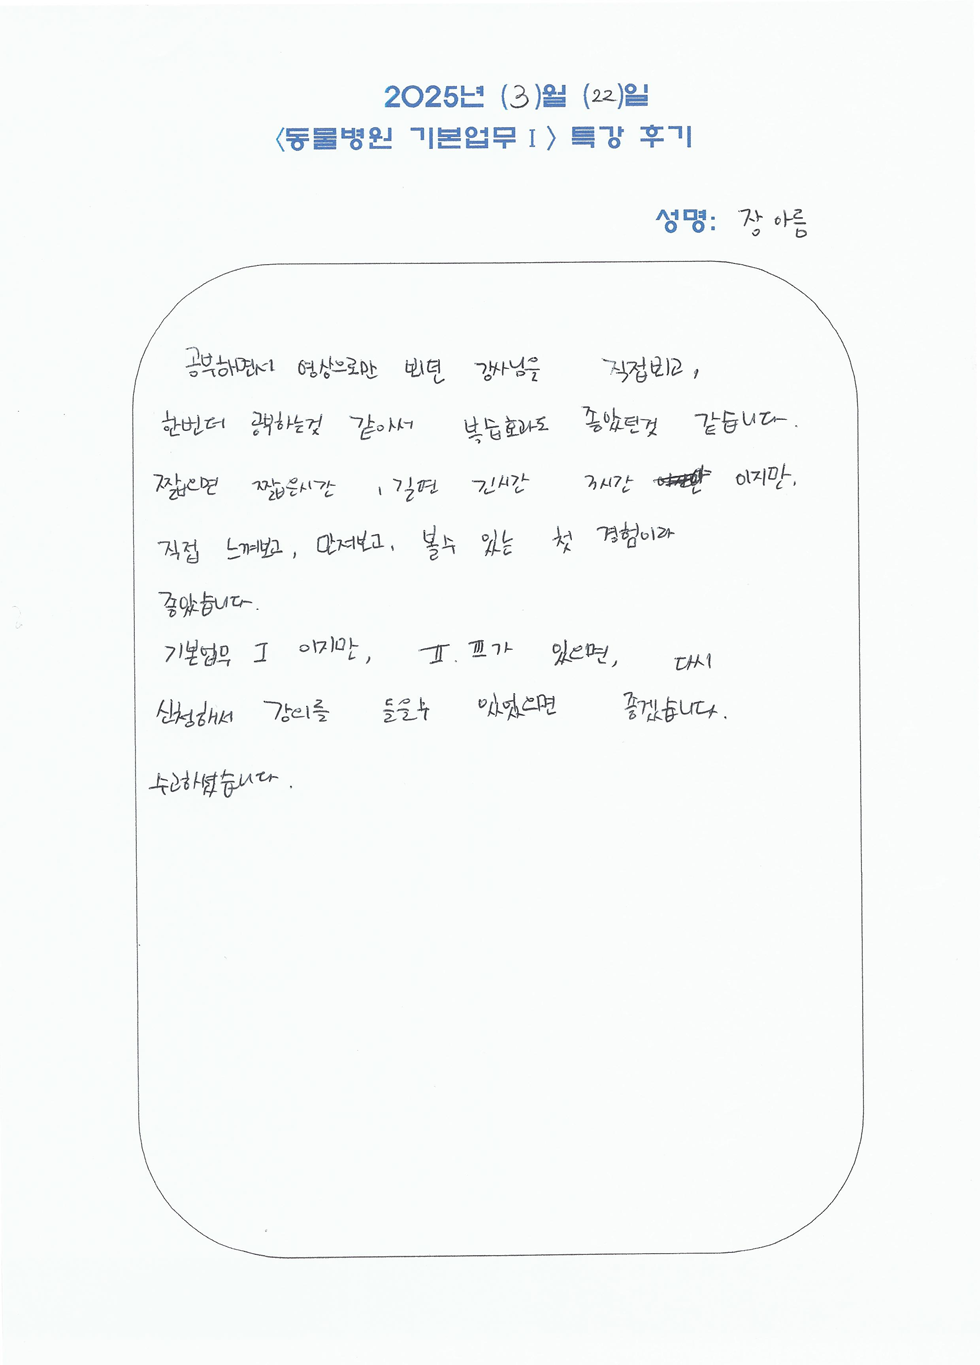 2025년 (3)월 (22)일
<동물병원 기본업무 I> 특강 후기
성명: 장아름
공부하면서 영상으로만 뵈던 강사님을 직접뵈고,
한번더 공부하는것 같아서 복습효과도 좋았던것 같습니다.
짧으면 짧은시간, 길면 긴시간 3시간 이지만,
직접 느껴보고, 만져보고, 볼수 있는 첫 경험이라
좋았습니다.
기본업무 I 이지만, II. III가 있으면, 다시
신청해서 강의를 들을수 있었으면 좋겠습니다.
수고하셨습니다.